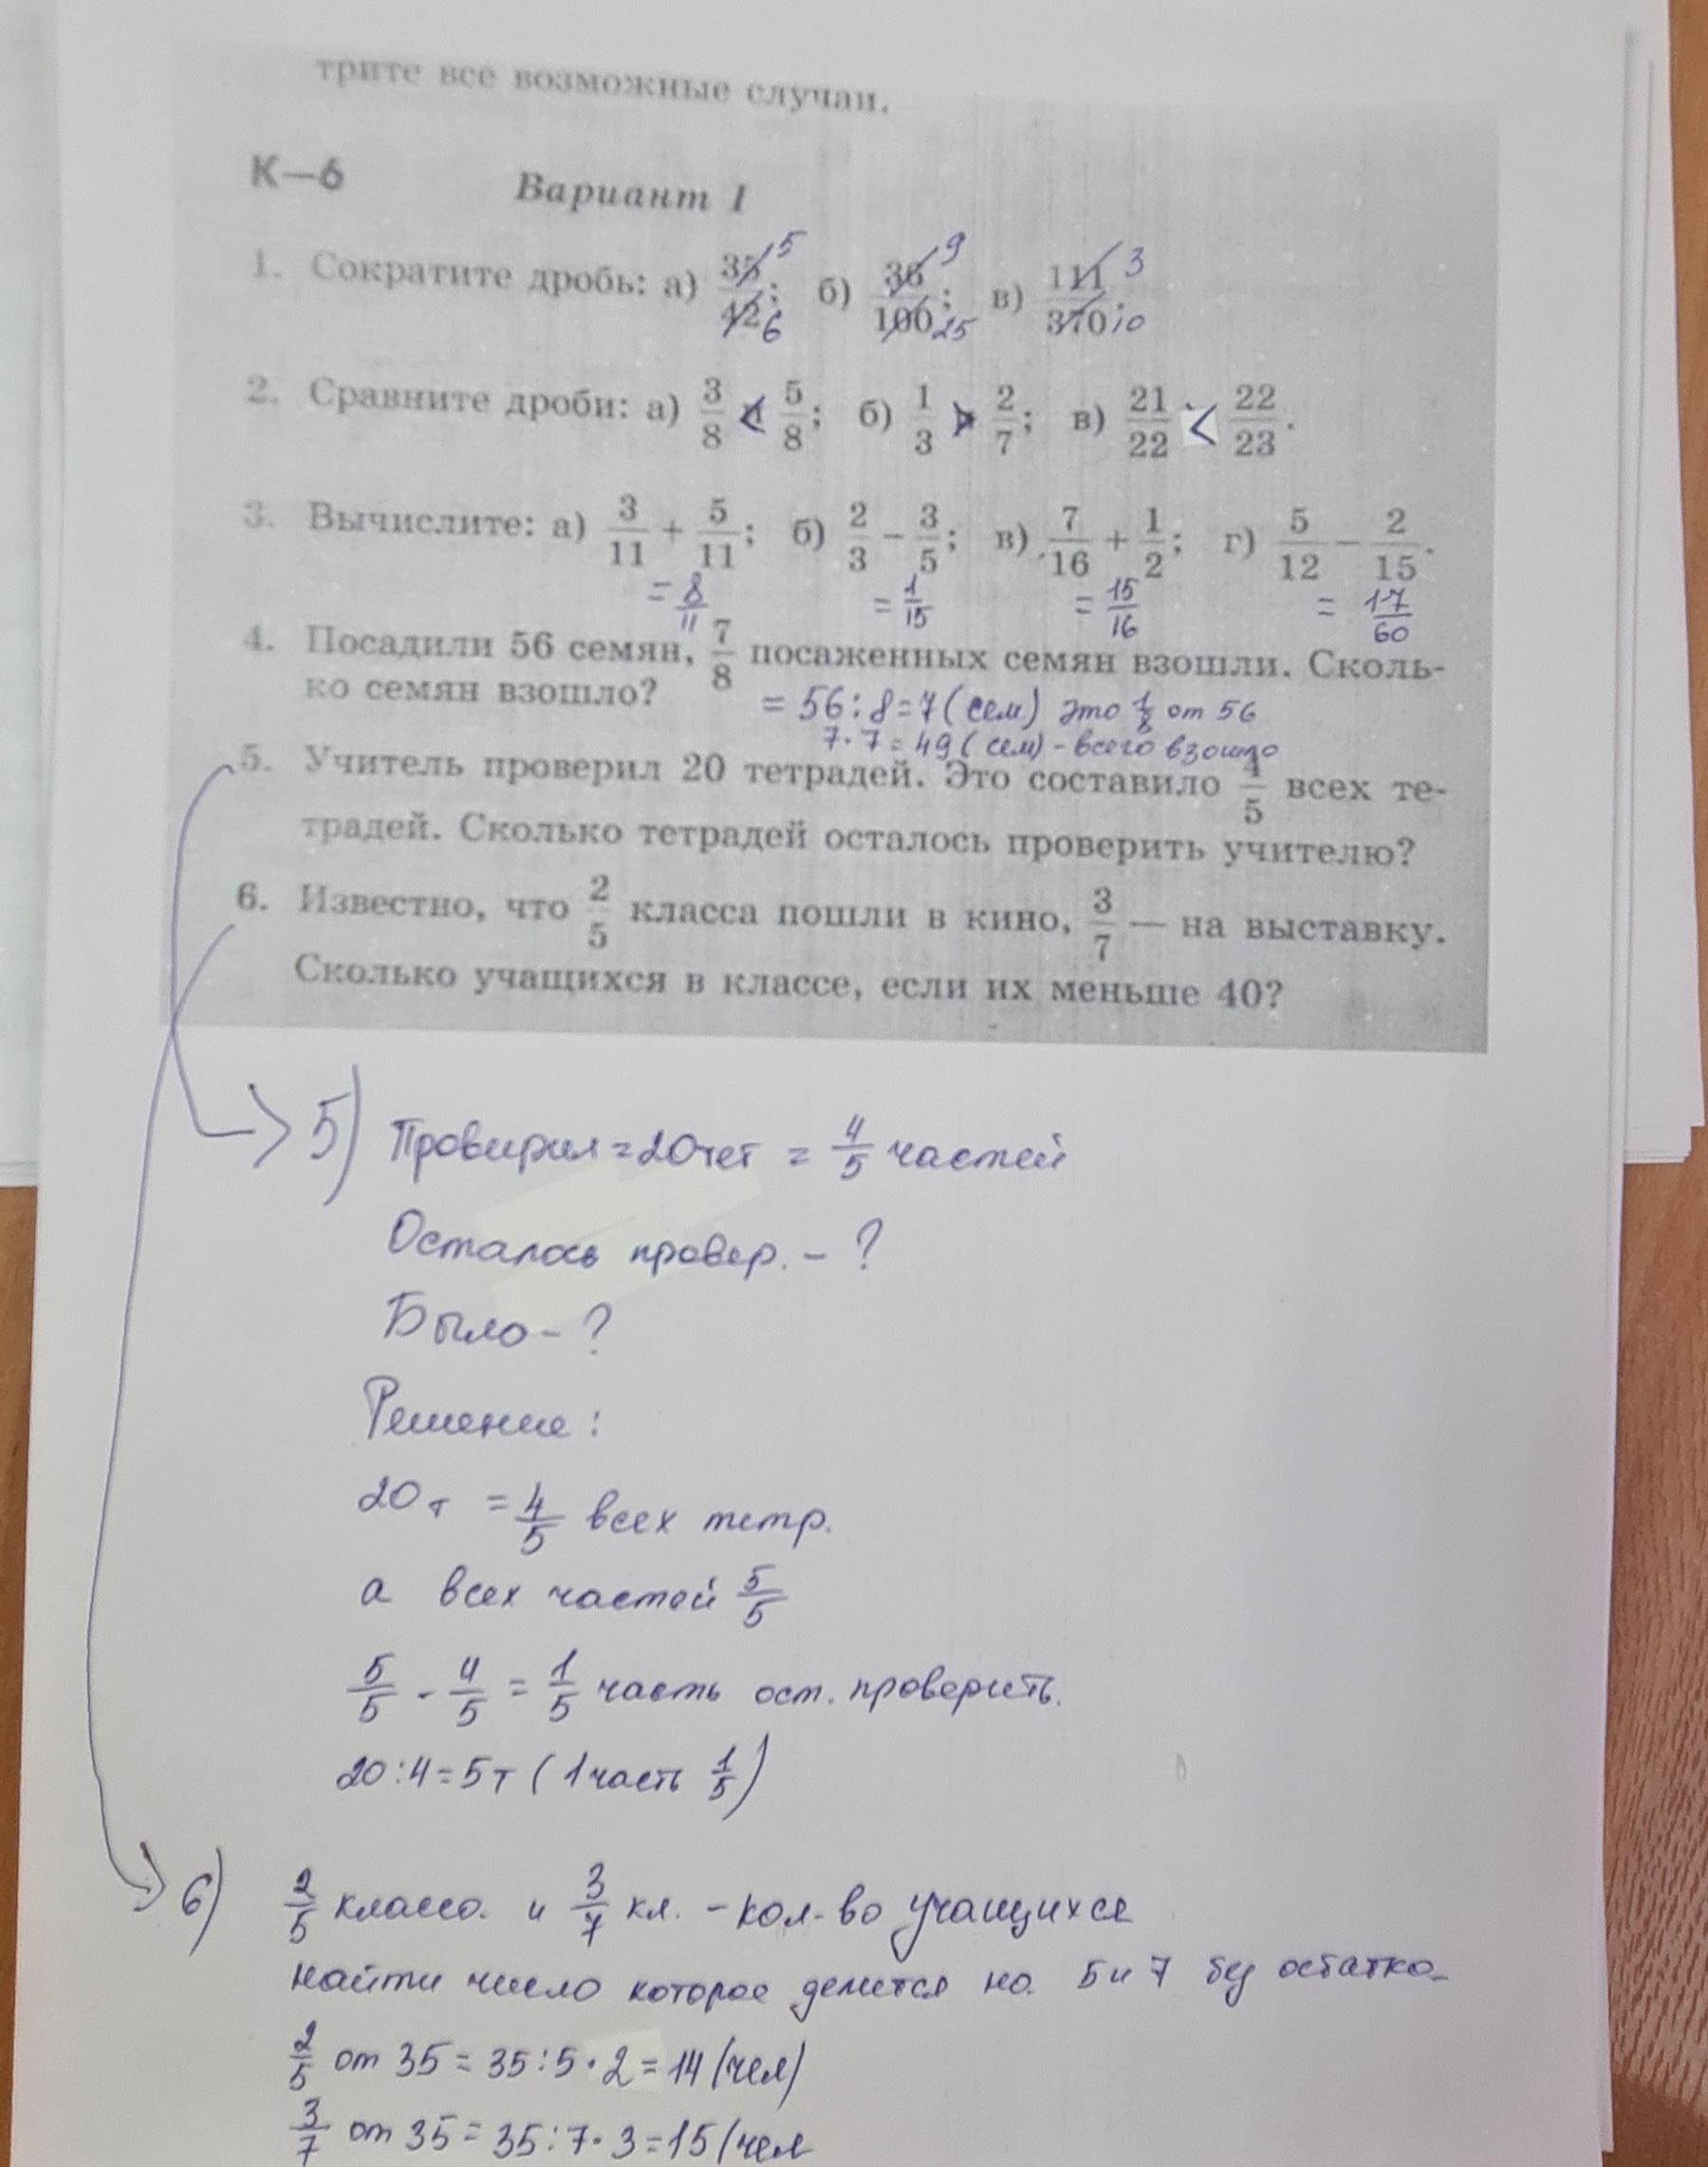 трите все возможные случаи.
К—6 Вариант I
1. Сократите дробь: а) 35/42; 5/6 б) 36/100; 9/25 в) 111/370. 3/10
2. Сравните дроби: а) 3/8 < 5/8; б) 1/3 > 2/7; в) 21/22 < 22/23.
3. Вычислите: а) 3/11 + 5/11; б) 2/3 − 3/5; в) 7/16 + 1/2; г) 5/12 − 2/15.
= 8/11 = 1/15 = 15/16 = 17/60
4. Посадили 56 семян, 7/8 посаженных семян взошли. Сколь-
ко семян взошло? = 56 : 8 = 7 (сем) это 1/8 от 56
7 · 7 = 49 (сем) - всего взошло
5. Учитель проверил 20 тетрадей. Это составило 4/5 всех те-
традей. Сколько тетрадей осталось проверить учителю?
6. Известно, что 2/5 класса пошли в кино, 3/7 — на выставку.
Сколько учащихся в классе, если их меньше 40?
5) = 20 тет = 4/5 частей
Осталось провер. – ?
Было – ?
Решение:
20 т = 4/5 всех тетр.
а всех частей 5/5
5/5 - 4/5 = 1/5 часть ост. проверить.
20 : 4 = 5 т (1 часть 1/5)
6) 2/5 класса. и 3/7 кл. – кол-во учащихся
найти число которое делится на 5 и 7 без
2/5 от 35 = 35 : 5 · 2 = 14 (чел)
3/7 от 35 = 35 : 7 · 3 = 15 (чел